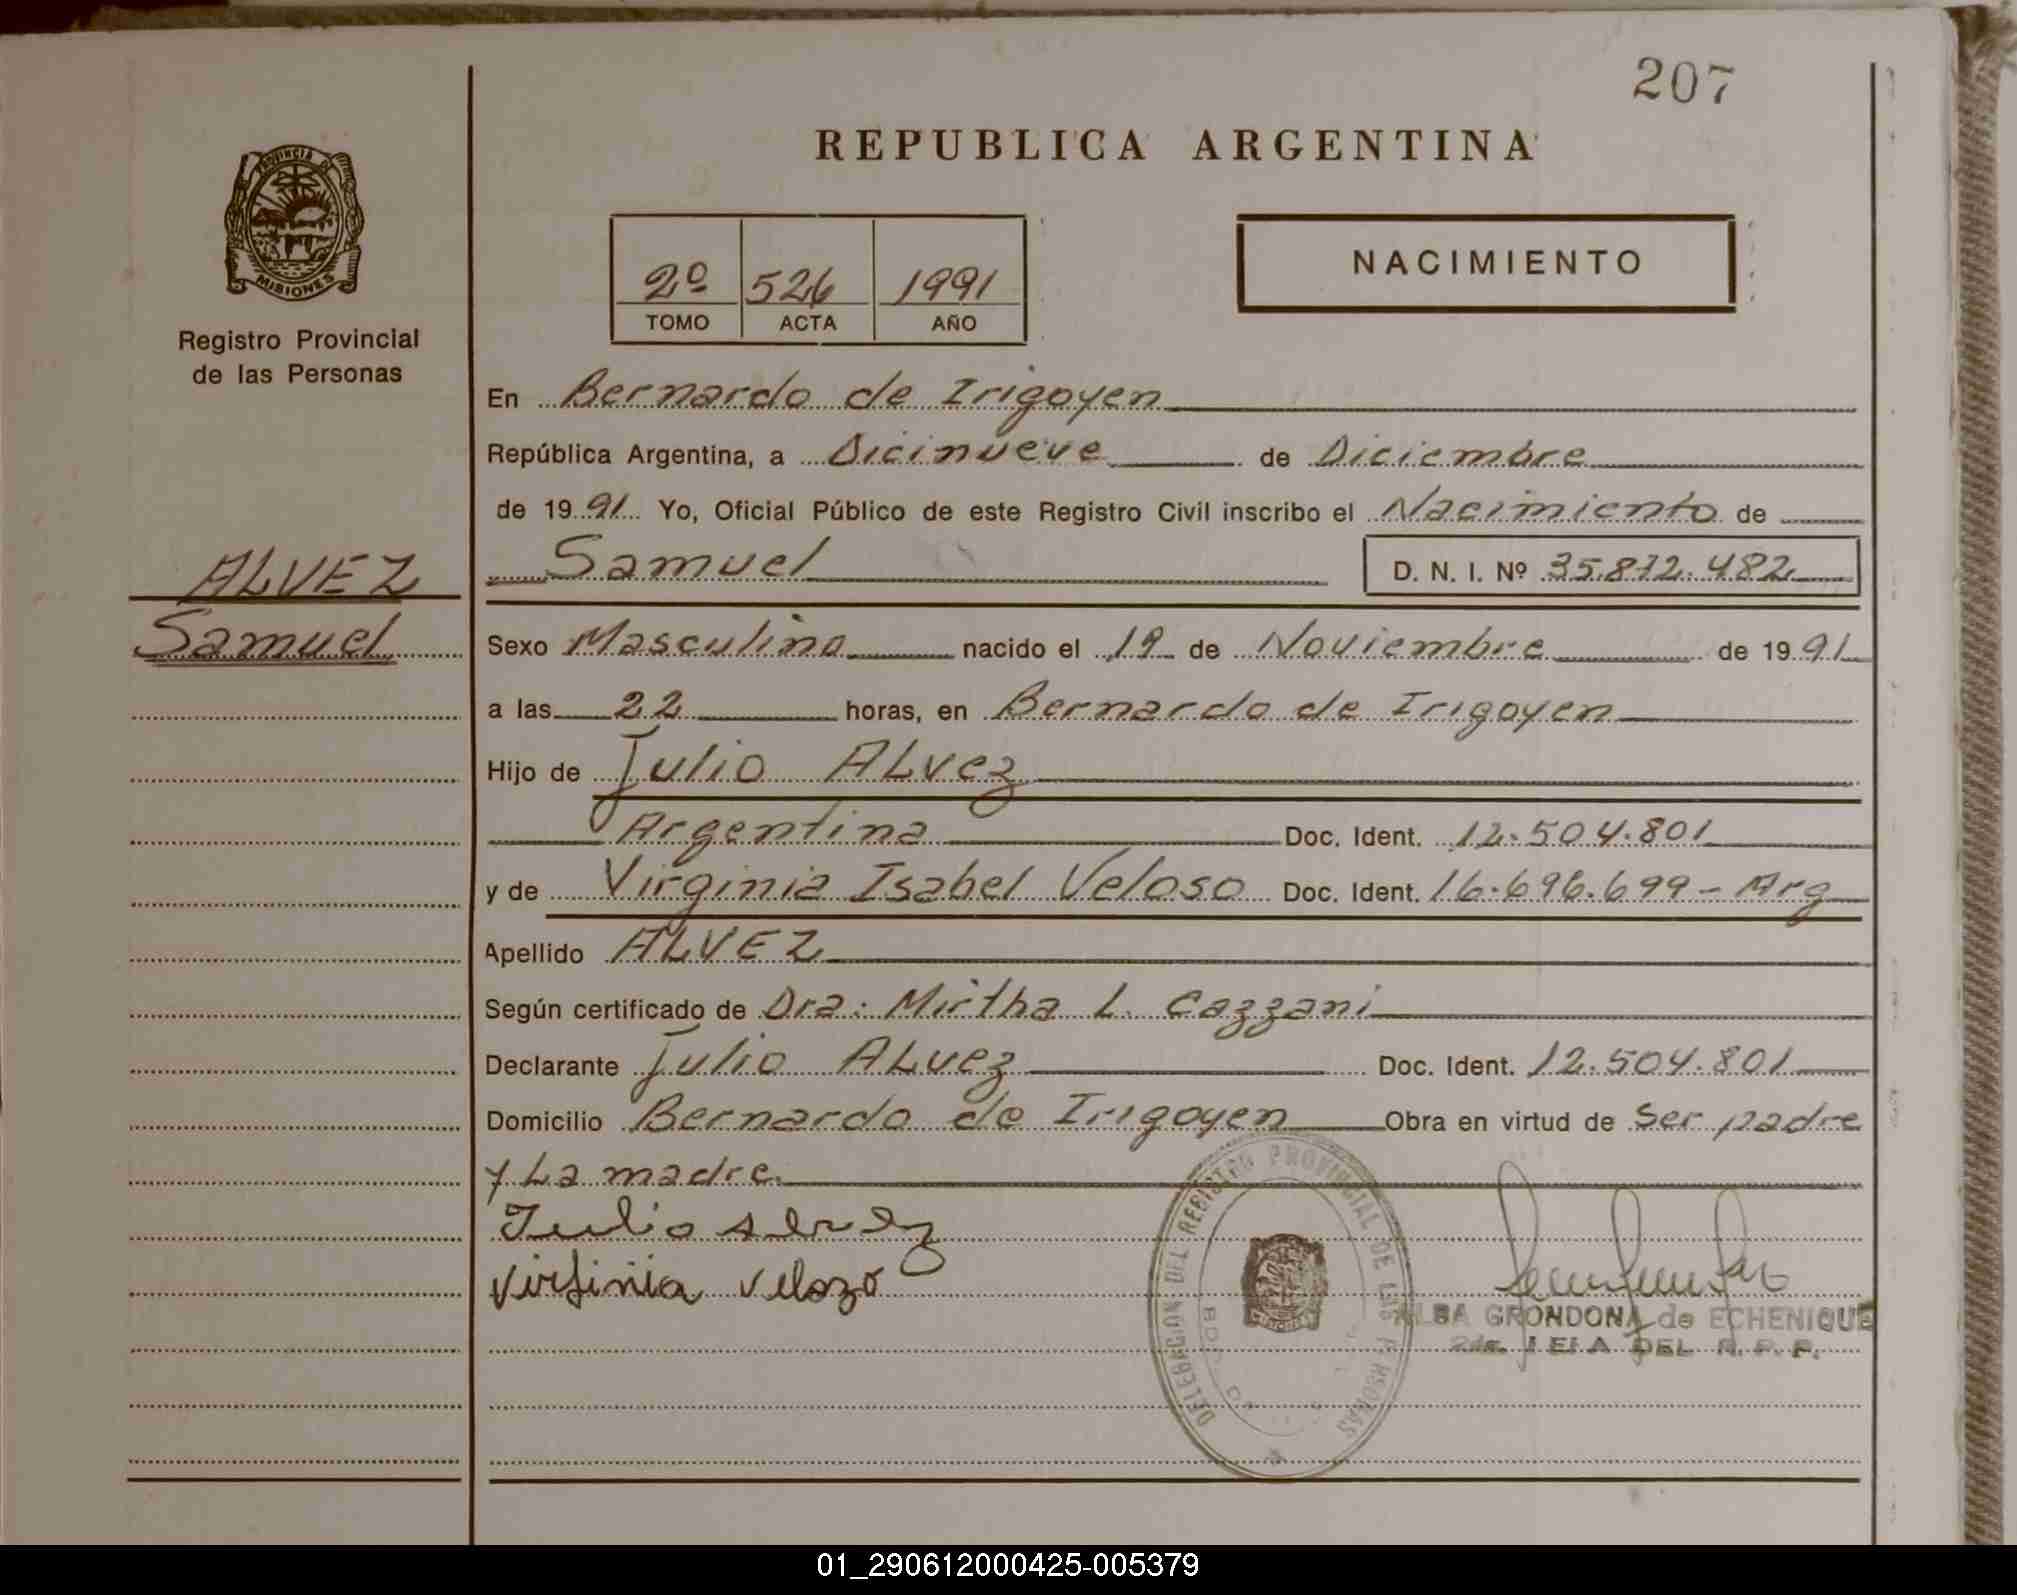 207
REPUBLICA ARGENTINA
PROVINCIA DE
MISIONES
Registro Provincial
de las Personas
2º 526 1991
TOMO ACTA AÑO
NACIMIENTO
En Bernardo de Irigoyen
República Argentina, a Dicinueve de Diciembre
de 1991 Yo, Oficial Público de este Registro Civil inscribo el Nacimiento de
Samuel D. N. I. Nº 35.872.482
ALVEZ
Samuel
Sexo Masculino nacido el 19 de Noviembre de 1991
a las 22 horas, en Bernardo de Irigoyen
Hijo de Julio ALvez
Argentina Doc. Ident. 12.504.801
y de Virginia Isabel Veloso Doc. Ident. 16.696.699 - Arg
Apellido ALVEZ
Según certificado de Dra: Mirtha L. Cazzani
Declarante Julio ALvez Doc. Ident. 12.504.801
Domicilio Bernardo de Irigoyen Obra en virtud de Ser padre
y La madre.
Julio Alvez
Virginia Velozo
DELEGACION DEL REGISTRO PROVINCIAL DE LAS PERSONAS
ALBA GRONDONA de ECHENIQUE
2da. JEFA DEL R. P. P.
01_290612000425-005379